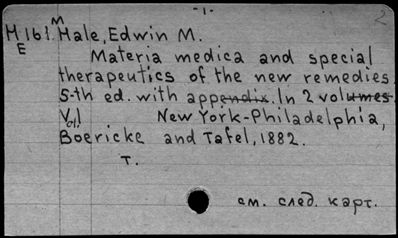 -1.
2
M
H161. Hale, Edwin M.
E
Materia medica and special
therapeutics of the new remedies.
5-th ed. with appendix. In 2 volumes.
Vol.1 New York-Philadelphia,
Boericke and Tafel, 1882.
T.
см. след. карт.